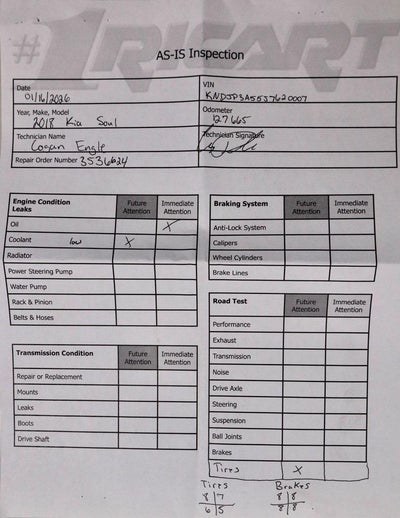 #1RICART
AS-IS Inspection
Date
01/16/2026
VIN
KNDJP3A55J7620007
Year, Make, Model
2018 Kia Soul
Odometer
127665
Technician Name
Logan Engle
Technician Signature
Repair Order Number 3536624
Engine Condition
Leaks
Future Attention
Immediate Attention
Oil X
Coolant low X
Radiator
Power Steering Pump
Water Pump
Rack & Pinion
Belts & Hoses
Transmission Condition
Future Attention
Immediate Attention
Repair or Replacement
Mounts
Leaks
Boots
Drive Shaft
Braking System
Future Attention
Immediate Attention
Anti-Lock System
Calipers
Wheel Cylinders
Brake Lines
Road Test
Future Attention
Immediate Attention
Performance
Exhaust
Transmission
Noise
Drive Axle
Steering
Suspension
Ball Joints
Brakes
Tires X
Tires
8 | 7
6 | 5
Brakes
8 | 8
8 | 8